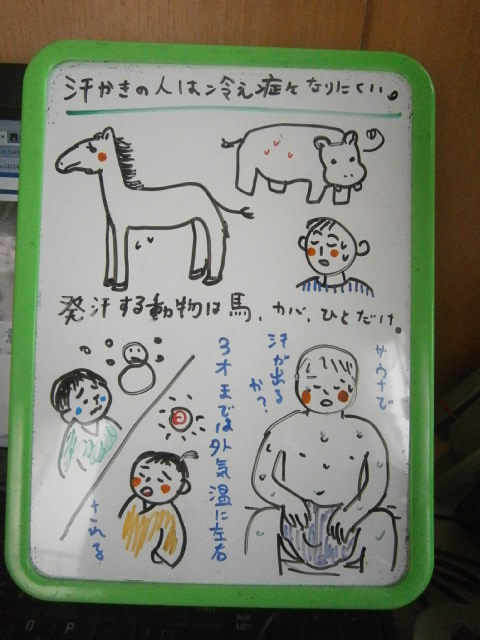 汗かきの人は冷え症になりにくい。
発汗する動物は馬、カバ、ひとだけ。
3才までは外気温に左右
される
サウナで
汗が出る
か？